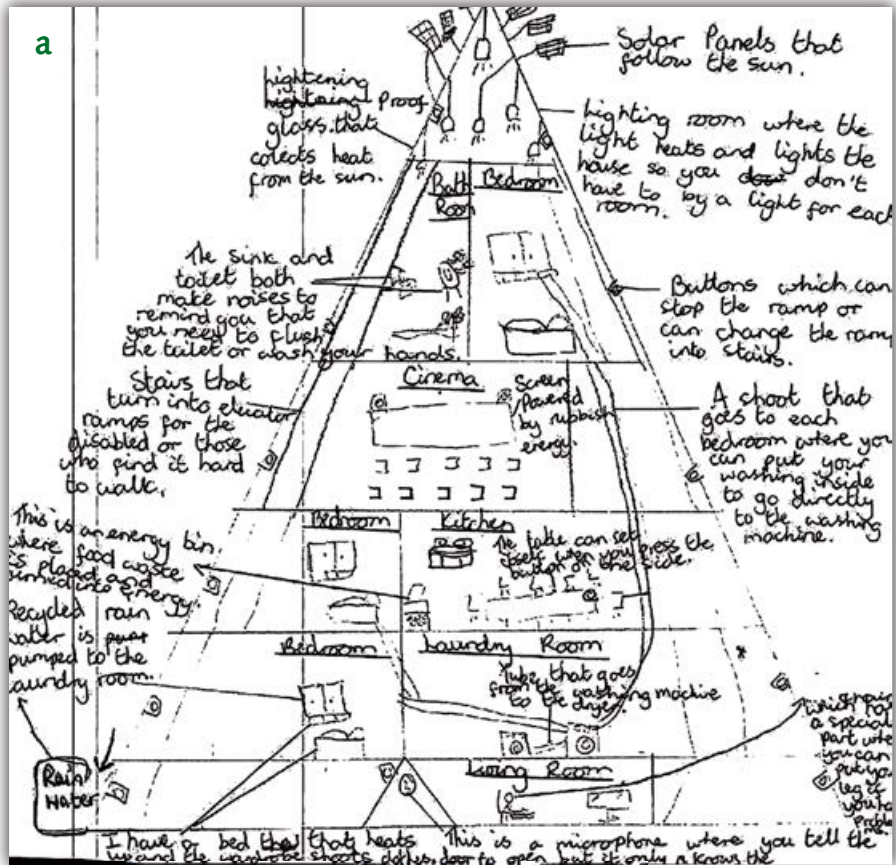 a
Solar Panels that
follow the sun.
hightening
hightning Proof
glass that
colects heat
from the sun.
highting room where the
light heats and lights the
house so you don't
have to by a light for each
room.
Bath
Room
Bedroom
The sink and
toilet both
make noises to
remind you that
you need to flush
the toilet or wash your hands.
Buttons which can
stop the ramp or
can change the ramp
into stairs.
Stairs that
turn into elevator
ramps for the
disabled or those
who find it hard
to walk.
Cinema
Screen
Powered
by rubbish
energy.
A shoot that
goes to each
bedroom where you
can put your
washing inside
to go directly
to the washing
machine.
This is an energy bin
where food waste
is placed and
turned into energy.
Bedroom
Kitchen
The table can set
itself when you press the
button on the side.
Recycled rain
water is
pumped to the
laundry room.
Bedroom
Laundry Room
Tube that goes
from the washing machine
to the dryer.
which
a special
part
you can
put you
leg
Rain
Water
Living Room
I have a bed that that heats
up and the wardrobe shoots
This is a microphone where you tell the
door to open but it only